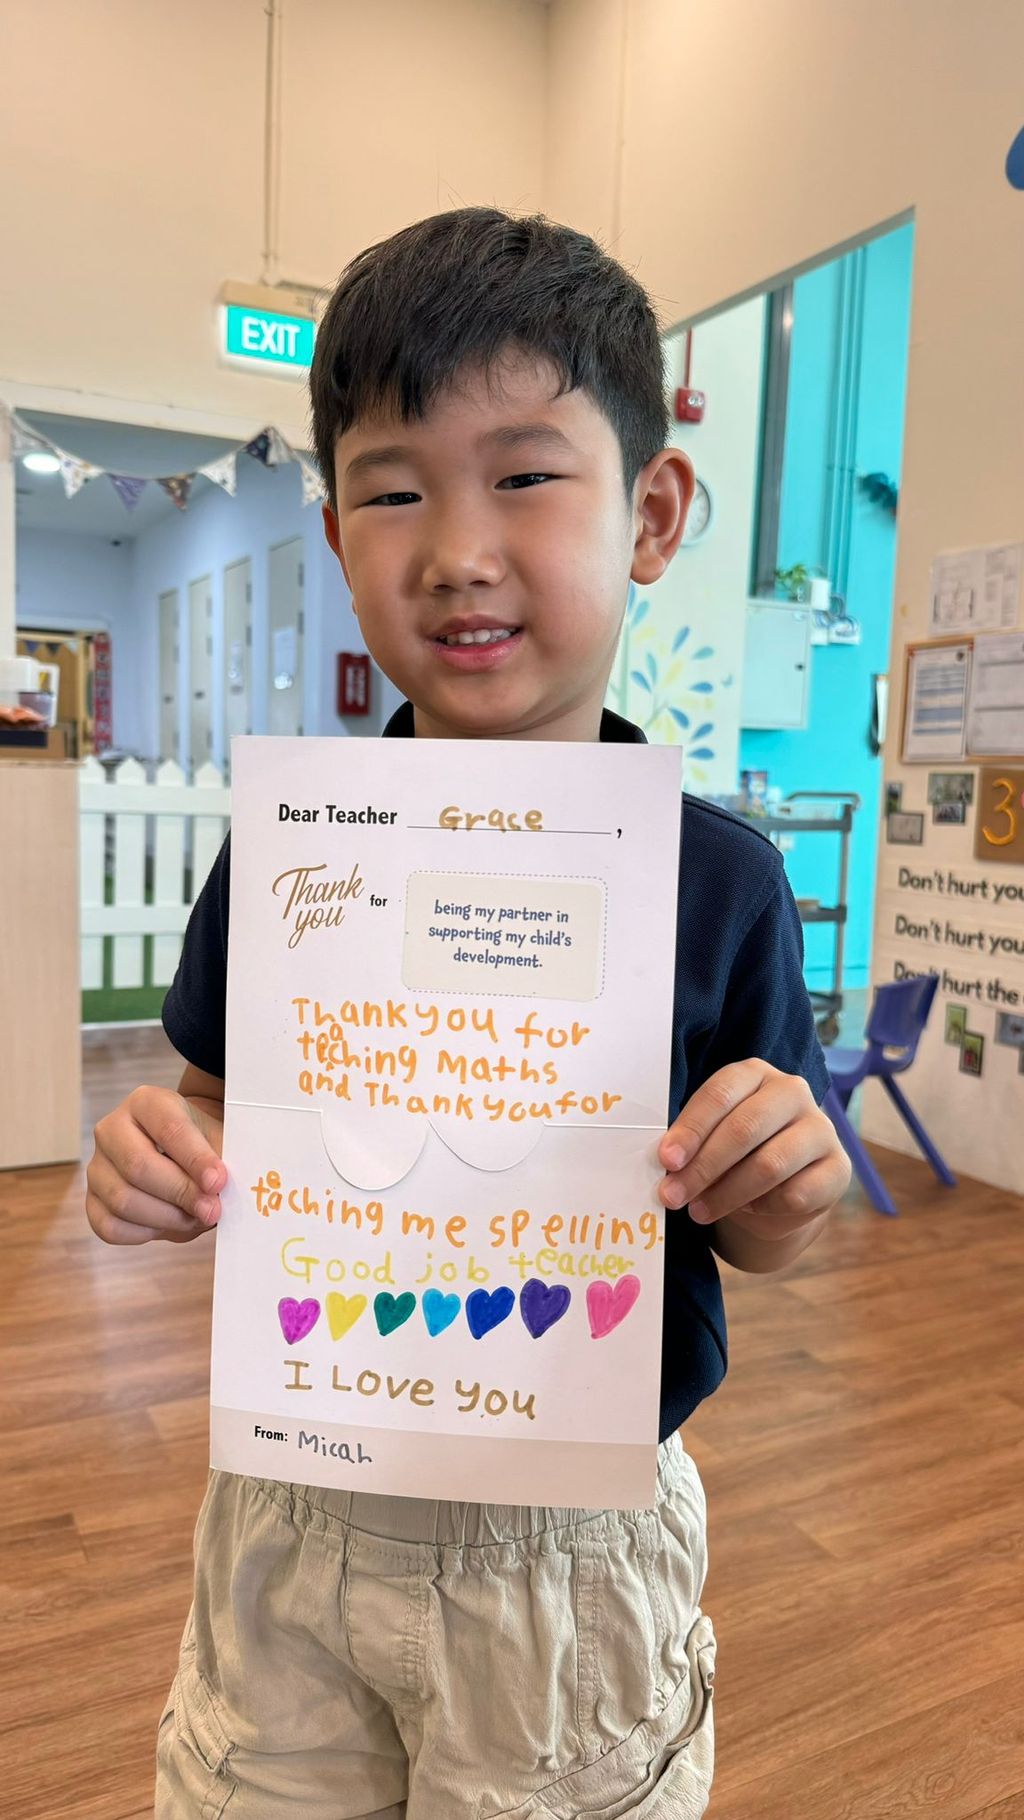 EXIT
Dear Teacher Grace,
Thank you for
being my partner in
supporting my child's
development.
Thank you for
teaching Maths
and Thank you for
teaching me spelling.
Good job teacher
I Love you
From: Micah
3
Don't hurt you
Don't hurt you
Don't hurt the